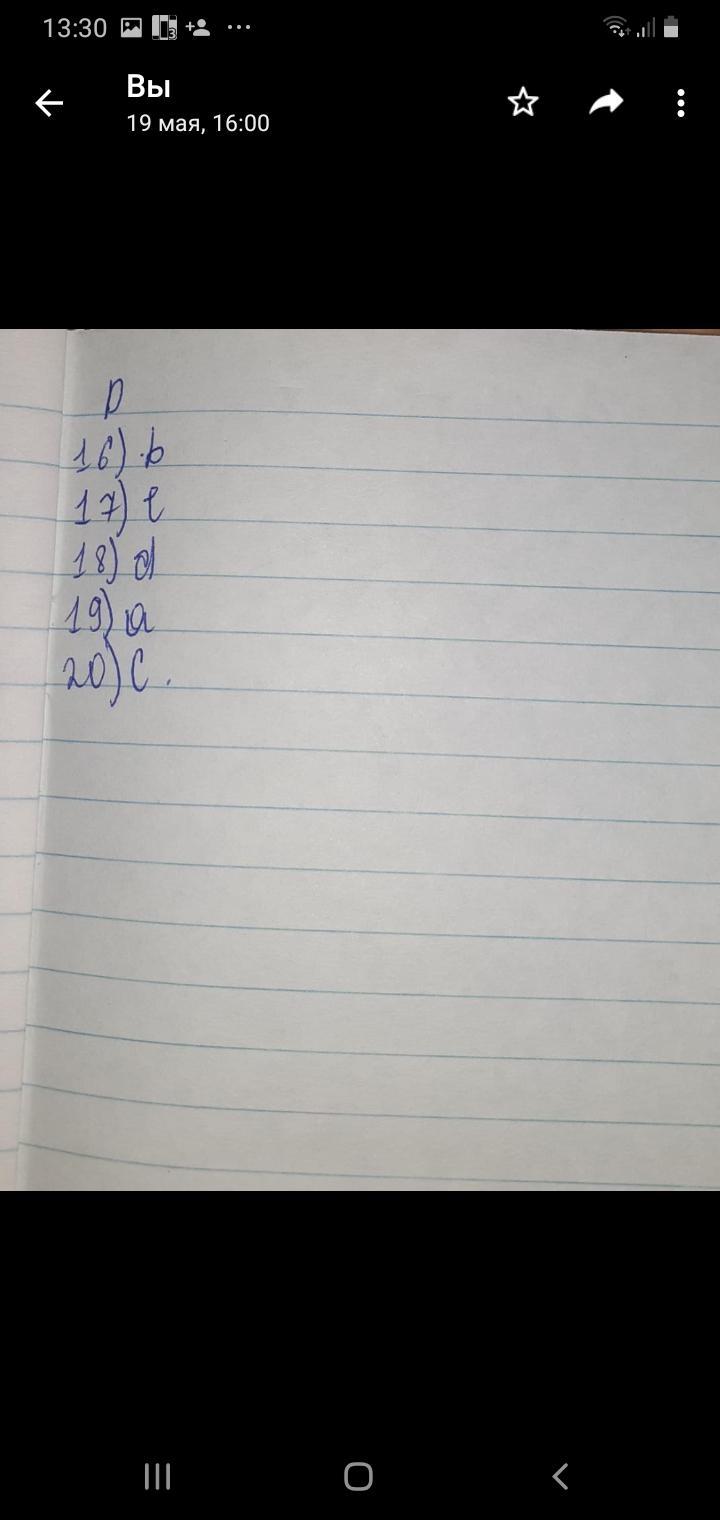 13:30
Вы
19 мая, 16:00
D
16) b
17) e
18) d
19) a
20) C.